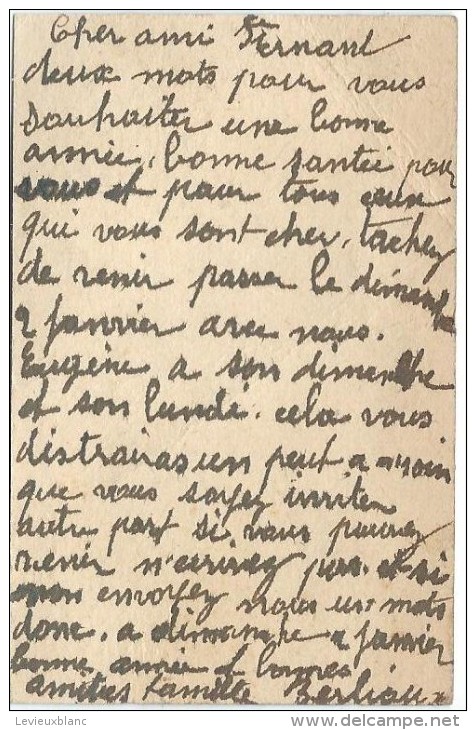 Cher ami Fernant
deux mots pour vous
souhaiter une bonne
année, bonne santée pour
vous et pour tous ceux
qui vous sont cher, tachez
de venir passer le dimanche
2 janvier avec nous.
Eugène a son dimanche
et son lundi. cela vous
distrairas un peut a moin
que vous soyez inviter
autre part si vous pouvez
venir n'ecrivez pas. et si
non envoyez nous un mots
donc. a dimanche 2 janvier
bonne année et bonnes
amitiés famille
Levieuxblanc
http://www.delcampe.net